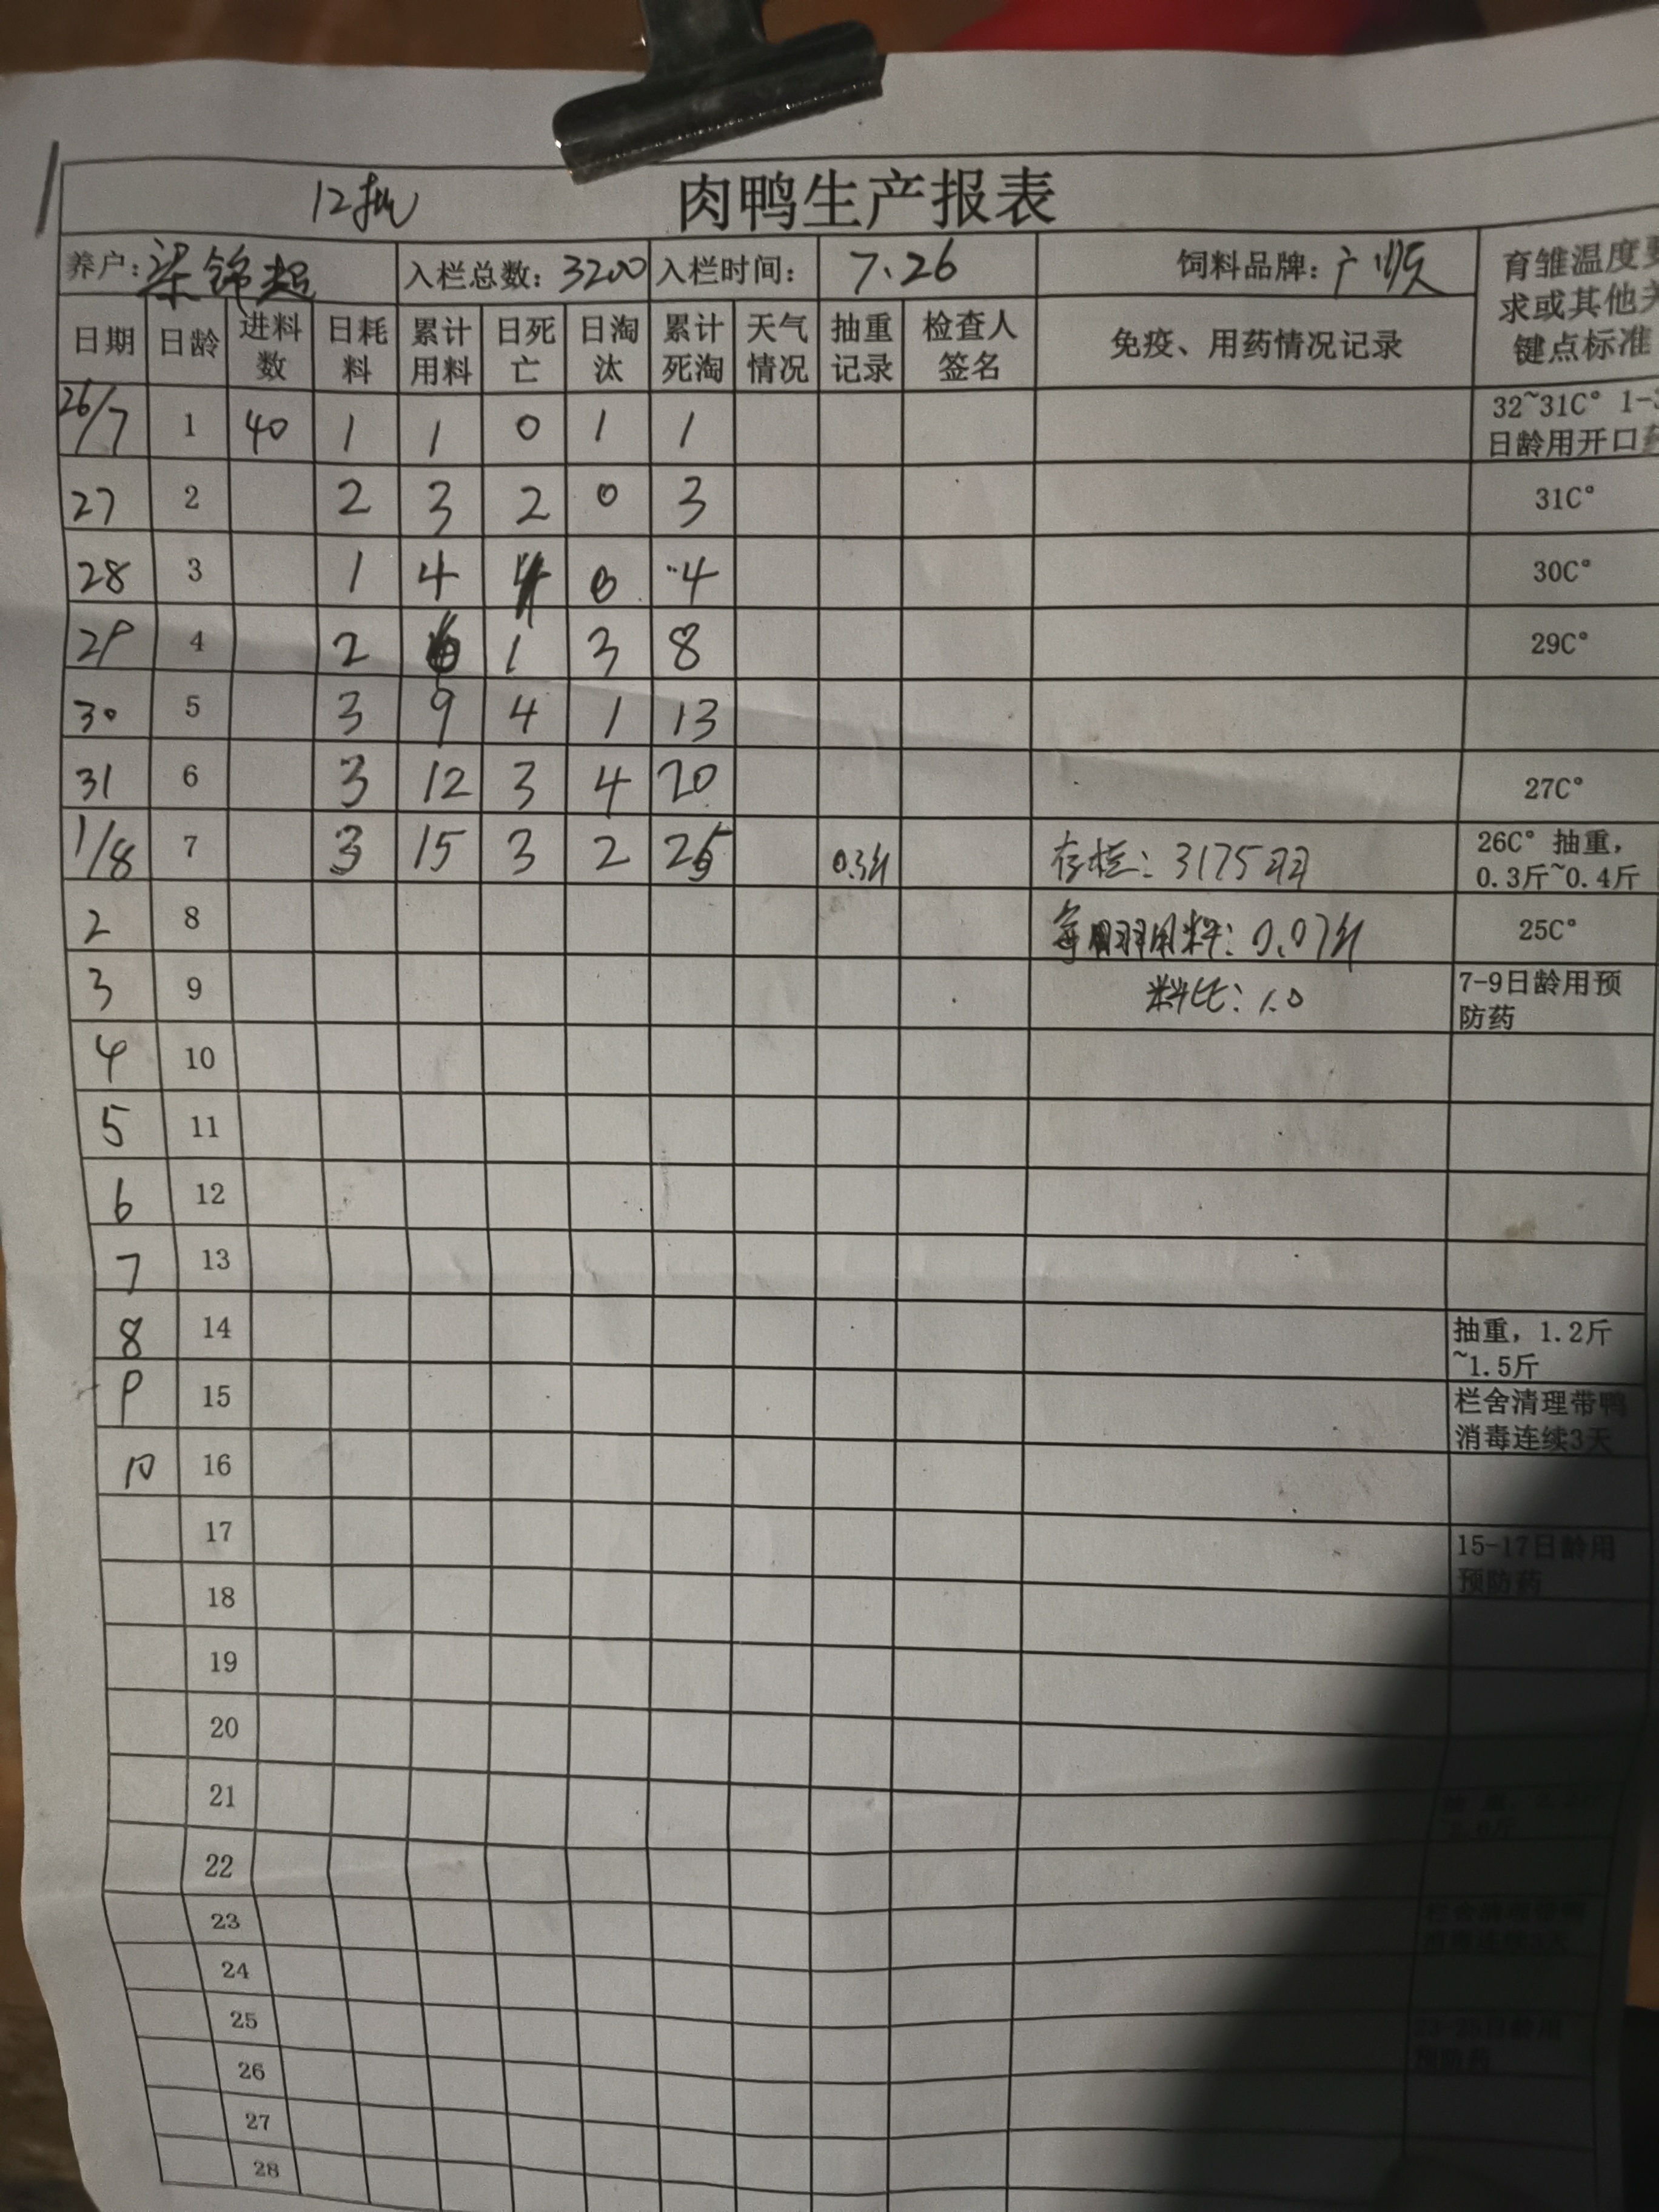 12批 肉鸭生产报表
养户:梁锦超 入栏总数:3200 入栏时间: 7.26 饲料品牌:广顺 育雏温度要求或其他关键点标准
日期 日龄 进料数 日耗料 累计用料 日死亡 日淘汰 累计死淘 天气情况 抽重记录 检查人签名 免疫、用药情况记录
26/7 1 40 1 1 0 1 1 32~31C° 1-3日龄用开口药
27 2 2 3 2 0 3 31C°
28 3 1 4 1 0 4 30C°
29 4 2 6 1 3 8 29C°
30 5 3 9 4 1 13
31 6 3 12 3 4 20 27C°
1/8 7 3 15 3 2 25 0.3斤 存栏:3175羽 26C° 抽重,0.3斤~0.4斤
2 8 每羽用料:0.07斤 25C°
3 9 料比:1.0 7-9日龄用预防药
4 10
5 11
6 12
7 13
8 14 抽重,1.2斤~1.5斤
9 15 栏舍清理带鸭消毒连续3天
10 16
17 15-17日龄用预防药
18
19
20
21
22
23 栏舍清理带鸭消毒连续3天
24
25 23-25日龄用预防药
26
27
28